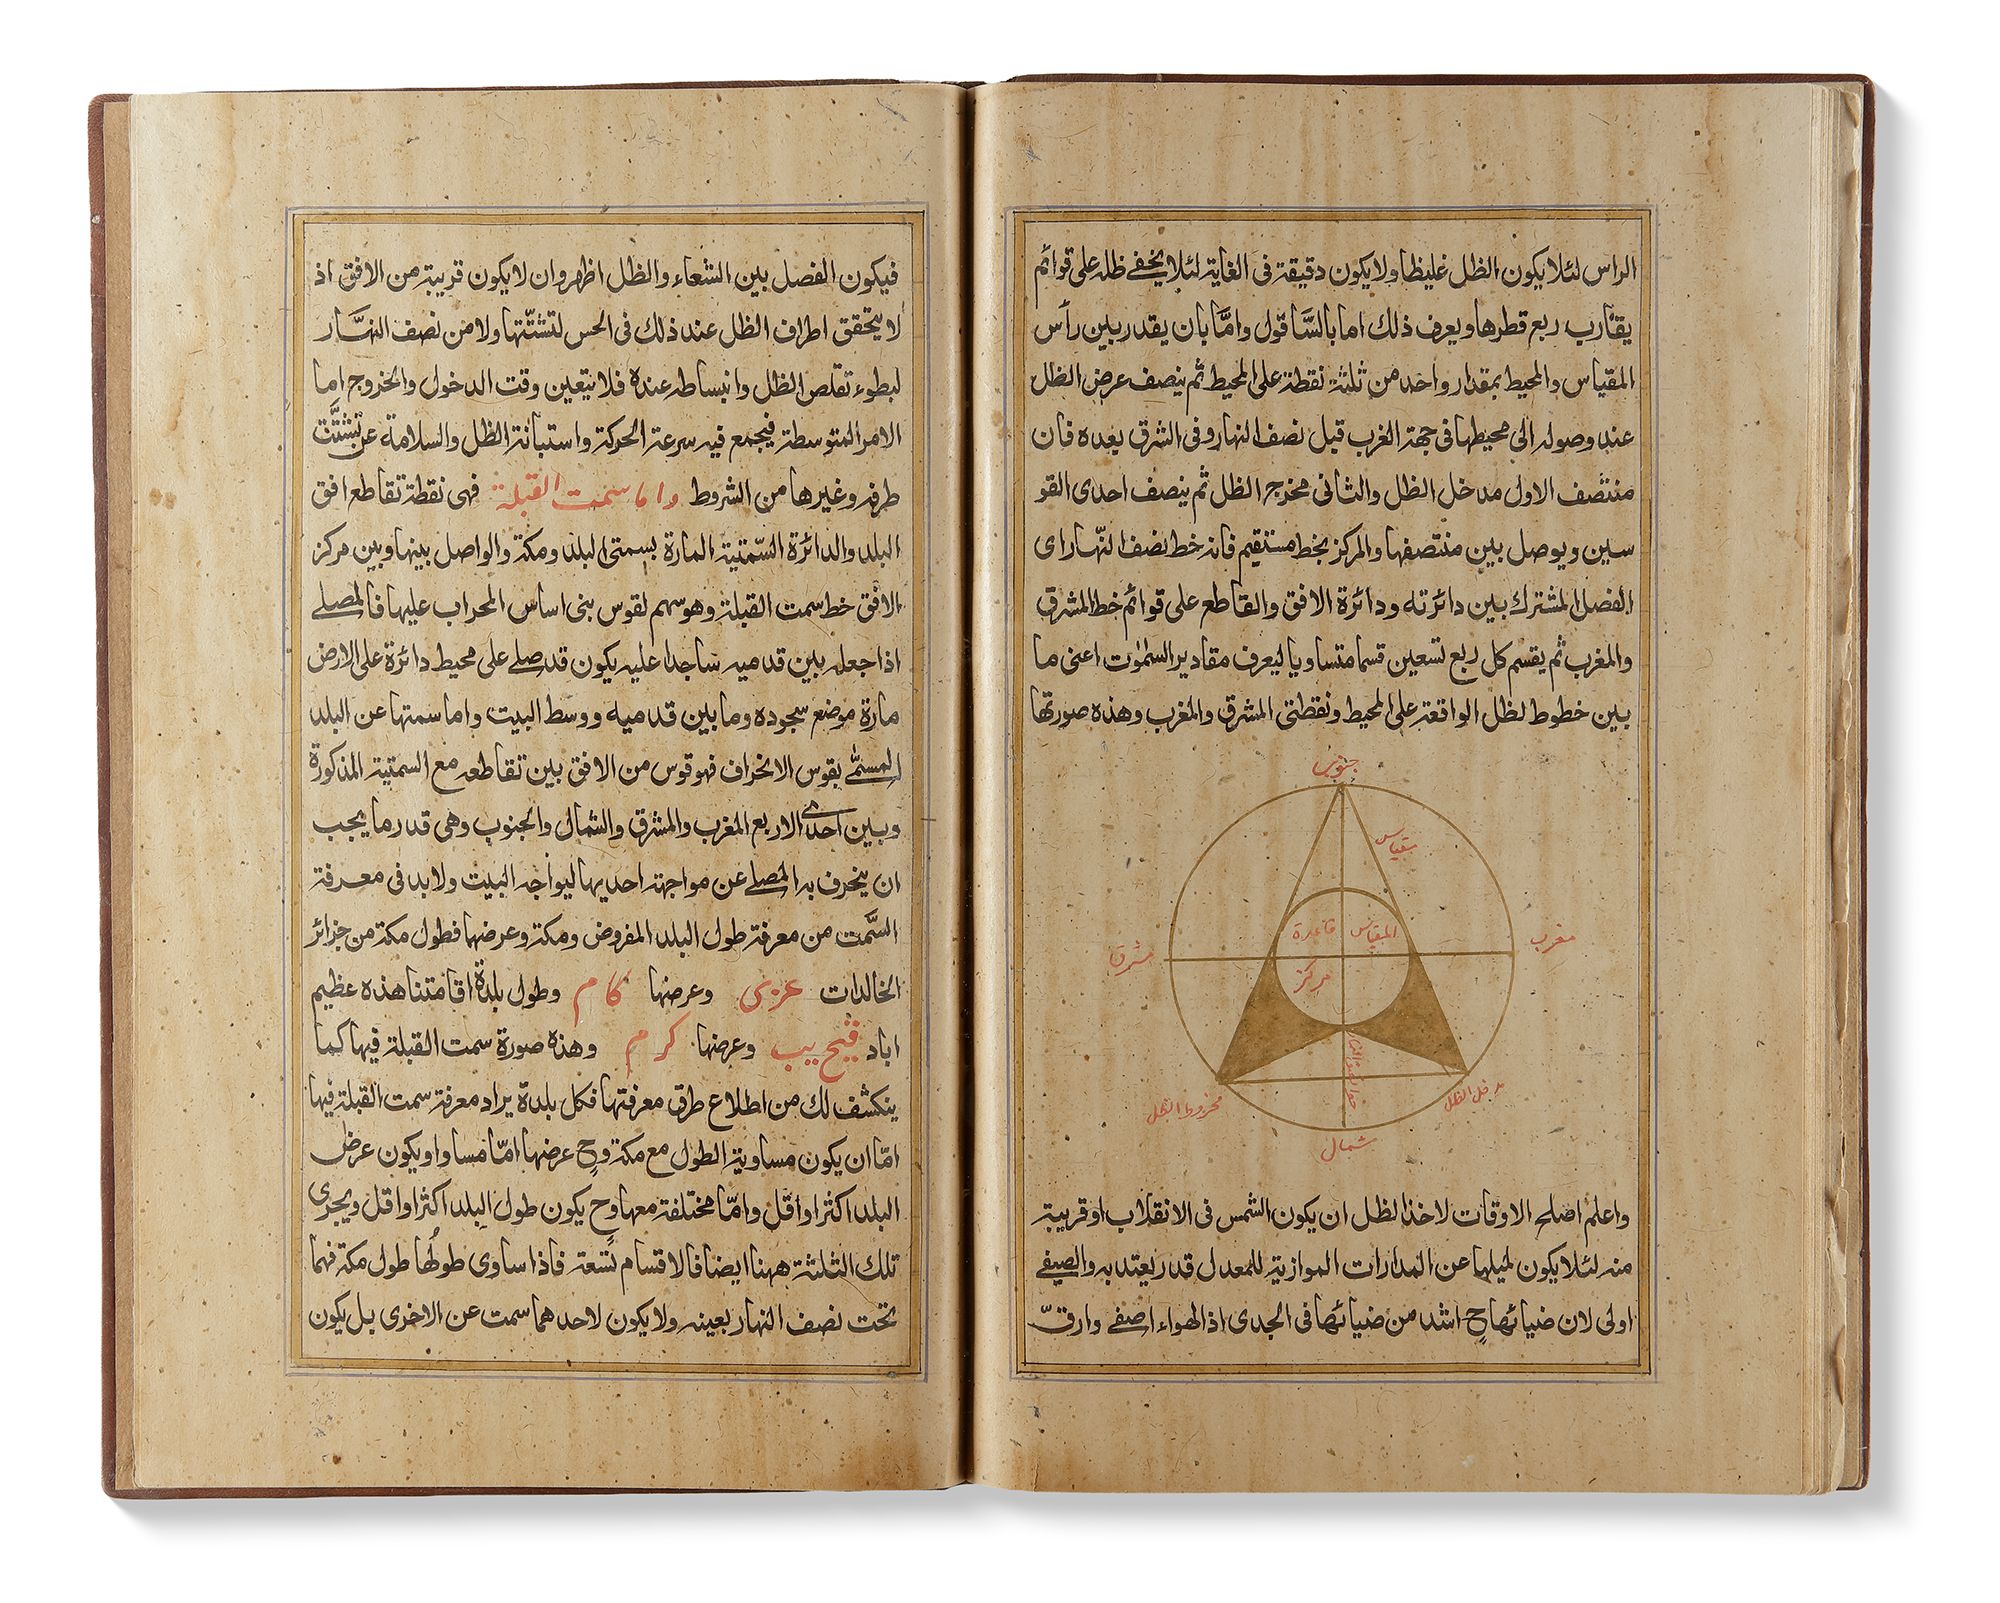 الراس لئلا يكون الظل غليظا ولا يكون دقيقة في الغاية لئلا يخفے ظله على قوائم
يقارب ربع قطرها ويعرف ذلك اما بالشاقول وامّا بان يقدر بين رأس
المقياس والمحيط بمقدار واحد من ثلثة نقطة على المحيط ثم ينصف عرض الظل
عند وصوله الى محيطها في جهة الغرب قبل نصف النهار وفي الشرق بعده فان
منتصف الاول مدخل الظل والثاني مخرج الظل ثم ينصف احدى القو
سين ويوصل بين منتصفها والمركز بخط مستقيم فانه خط نصف النّهار اى
الفصل المشترك بين دائرته ودائرة الافق والقاطع على قوائم خط المشرق
والمغرب ثم يقسم كل ربع تسعين قسما متساويا ليعرف مقادير السموٰت اعنى ما
بين خطوط لظل الواقعة على المحيط ونقطتى المشرق والمغرب وهذه صورتها
جنوب
مقياس
قاعدة المقياس
مركز
مغرب
مشرق
مدخل الظل
مخروط الظل
شمال
واعلم اصلح الاوقات لاخذ الظل ان يكون الشمس في الانقلاب او قريبة
منه لئلا يكون لميلها عن المدارات الموازية للمعدل قدر يعتد به والصيفے
اولى لان ضيائها ح اشد من ضيائها في الجدى اذ الهواء اصفے وارقّ
فيكون الفصل بين الشعاء والظل اظهر وان لا يكون قريبة من الافق اذ
لا يتحقق اطراف الظل عند ذلك في الحس لتشتّتها ولا من نصف النهَّار
لبطوء تقلص الظل وانبساطه عنده فلا يتعين وقت الدخول والخروج اما
الامر المتوسطة فيجمع فيه سرعة الحركة واستبانة الظل والسلامة عن تشتَّت
طرفه وغيرها من الشروط واما سمت القبلة فهى نقطة تقاطع افق
البلد والدائرة السّمتية المارة بسمتى البلد ومكة والواصل بينها وبين مركز
الافق خط سمت القبلة وهو سهم لقوس بنى اساس المحراب عليها فالمصلے
اذا جعله بين قدميه ساجدا عليه يكون قد صلے على محيط دائرة على الارض
مارة موضع سجوده وما بين قدميه ووسط البيت واما سمتها عن البلد
المسمّٰے بقوس الانحراف فهو قوس من الافق بين تقاطعه مع السمتية المذكورة
وبين احدى الاربع المغرب والمشرق والشمال والجنوب وهى قدر ما يجب
ان ينحرف به المصلے عن مواجهة احديها ليواجه البيت ولا بد في معرفة
السَّمت من معرفة طول البلد المفروض ومكة وعرضها فطول مكة من جزائر
الخالدات عزى وعرضها كام وطول بلدة اقامتنا هذه عظيم
اباد قيح يب وعرضها كرم وهذه صورة سمت القبلة فيها كما
ينكشف لك من اطلاع طرق معرفتها فكل بلدة يراد معرفة سمت القبلة فيها
امّا ان يكون مساوية الطول مع مكة وح عرضها امّا مساو او يكون عرض
البلد اكثر او اقل وامّا مختلفة معها وح يكون طول البلد اكثر او اقل ويجرى
تلك الثلثة ههنا ايضا فالاقسام تسعة فاذا ساوى طولُها طول مكة فهما
تحت نصف النهار بعينه ولا يكون لاحدهما سمت عن الاخرى بل يكون